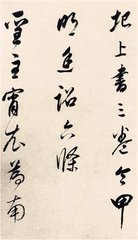 圯上書三卷令甲
明詔六條
聖主宵衣為南